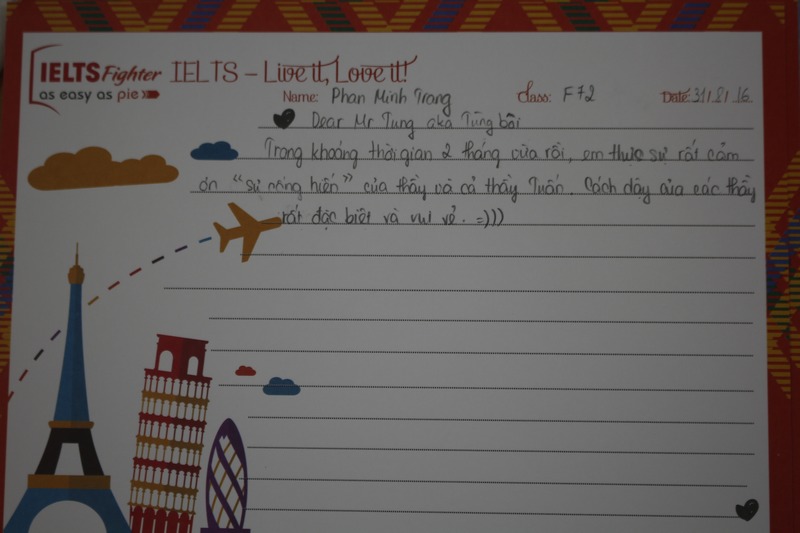 IELTS Fighter IELTS – Live it, Love it!
as easy as pie
Name: Phan Minh Trang Class: F72 Date: 31/8/16
Dear Mr Tung aka Tùng bồi
Trong khoảng thời gian 2 tháng vừa rồi, em thực sự rất cảm
ơn “sự nồng hiến” của thầy và cả thầy Tuấn. Cách dậy của các thầy
rất đặc biệt và vui vẻ. =)))